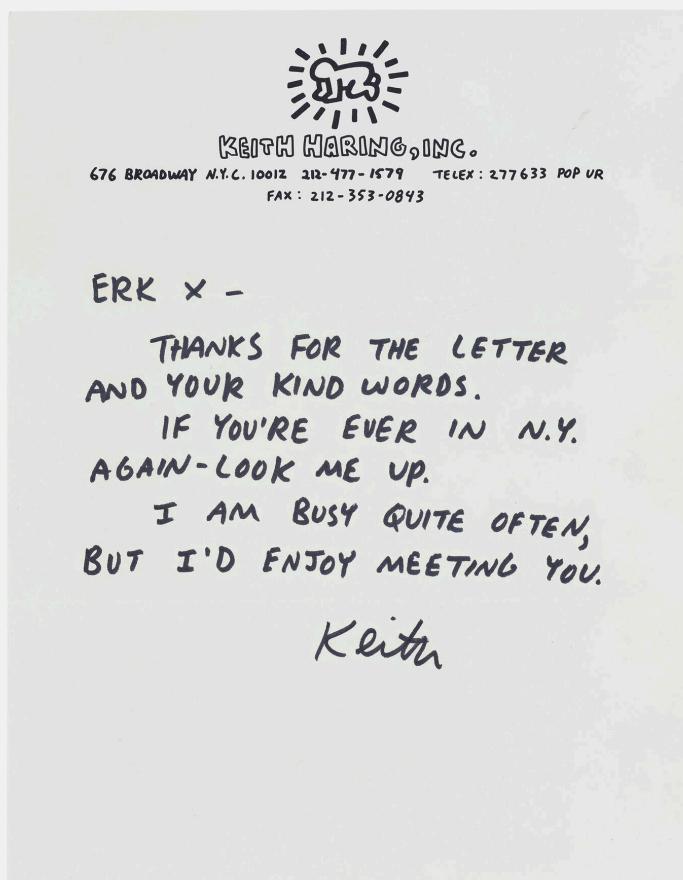 KEITH HARING, INC.
676 BROADWAY N.Y.C. 10012 212-477-1579 TELEX: 277633 POP UR
FAX: 212-353-0843
ERK X -
THANKS FOR THE LETTER
AND YOUR KIND WORDS.
IF YOU'RE EVER IN N.Y.
AGAIN-LOOK ME UP.
I AM BUSY QUITE OFTEN,
BUT I'D ENJOY MEETING YOU.
Keith